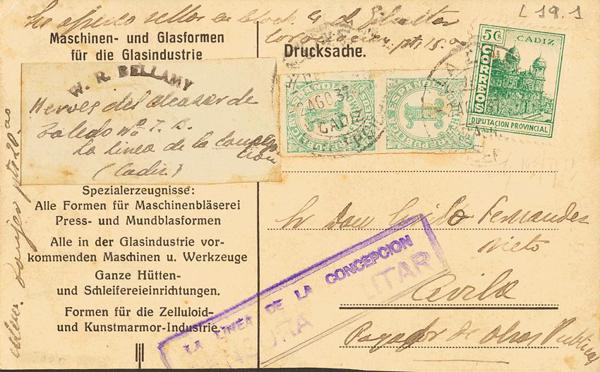 Le ofrezco sellos en block 4 de Gibraltar
Coronación pts 15.00
L 19.1
Maschinen- und Glasformen
für die Glasindustrie
Drucksache.
W. R. BELLAMY
Heroes del Alcazar de
Toledo Nº 7.
La Linea de la Concep
cion
(Cadiz)
AGO 37
CADIZ
ESPAÑA
1
5C
CADIZ
CORREOS
DIPUTACION PROVINCIAL
Spezialerzeugnisse:
Alle Formen für Maschinenbläserei
Press- und Mundblasformen
Alle in der Glasindustrie vor-
kommenden Maschinen u. Werkzeuge
Ganze Hütten-
und Schleifereieinrichtungen.
Formen für die Zelluloid-
und Kunstmarmor-Industrie.
Sr Don Guido Fernandez
Nieto
Avila
Pagador de Obras Publicas
LA LINEA DE LA CONCEPCION
CENSURA MILITAR